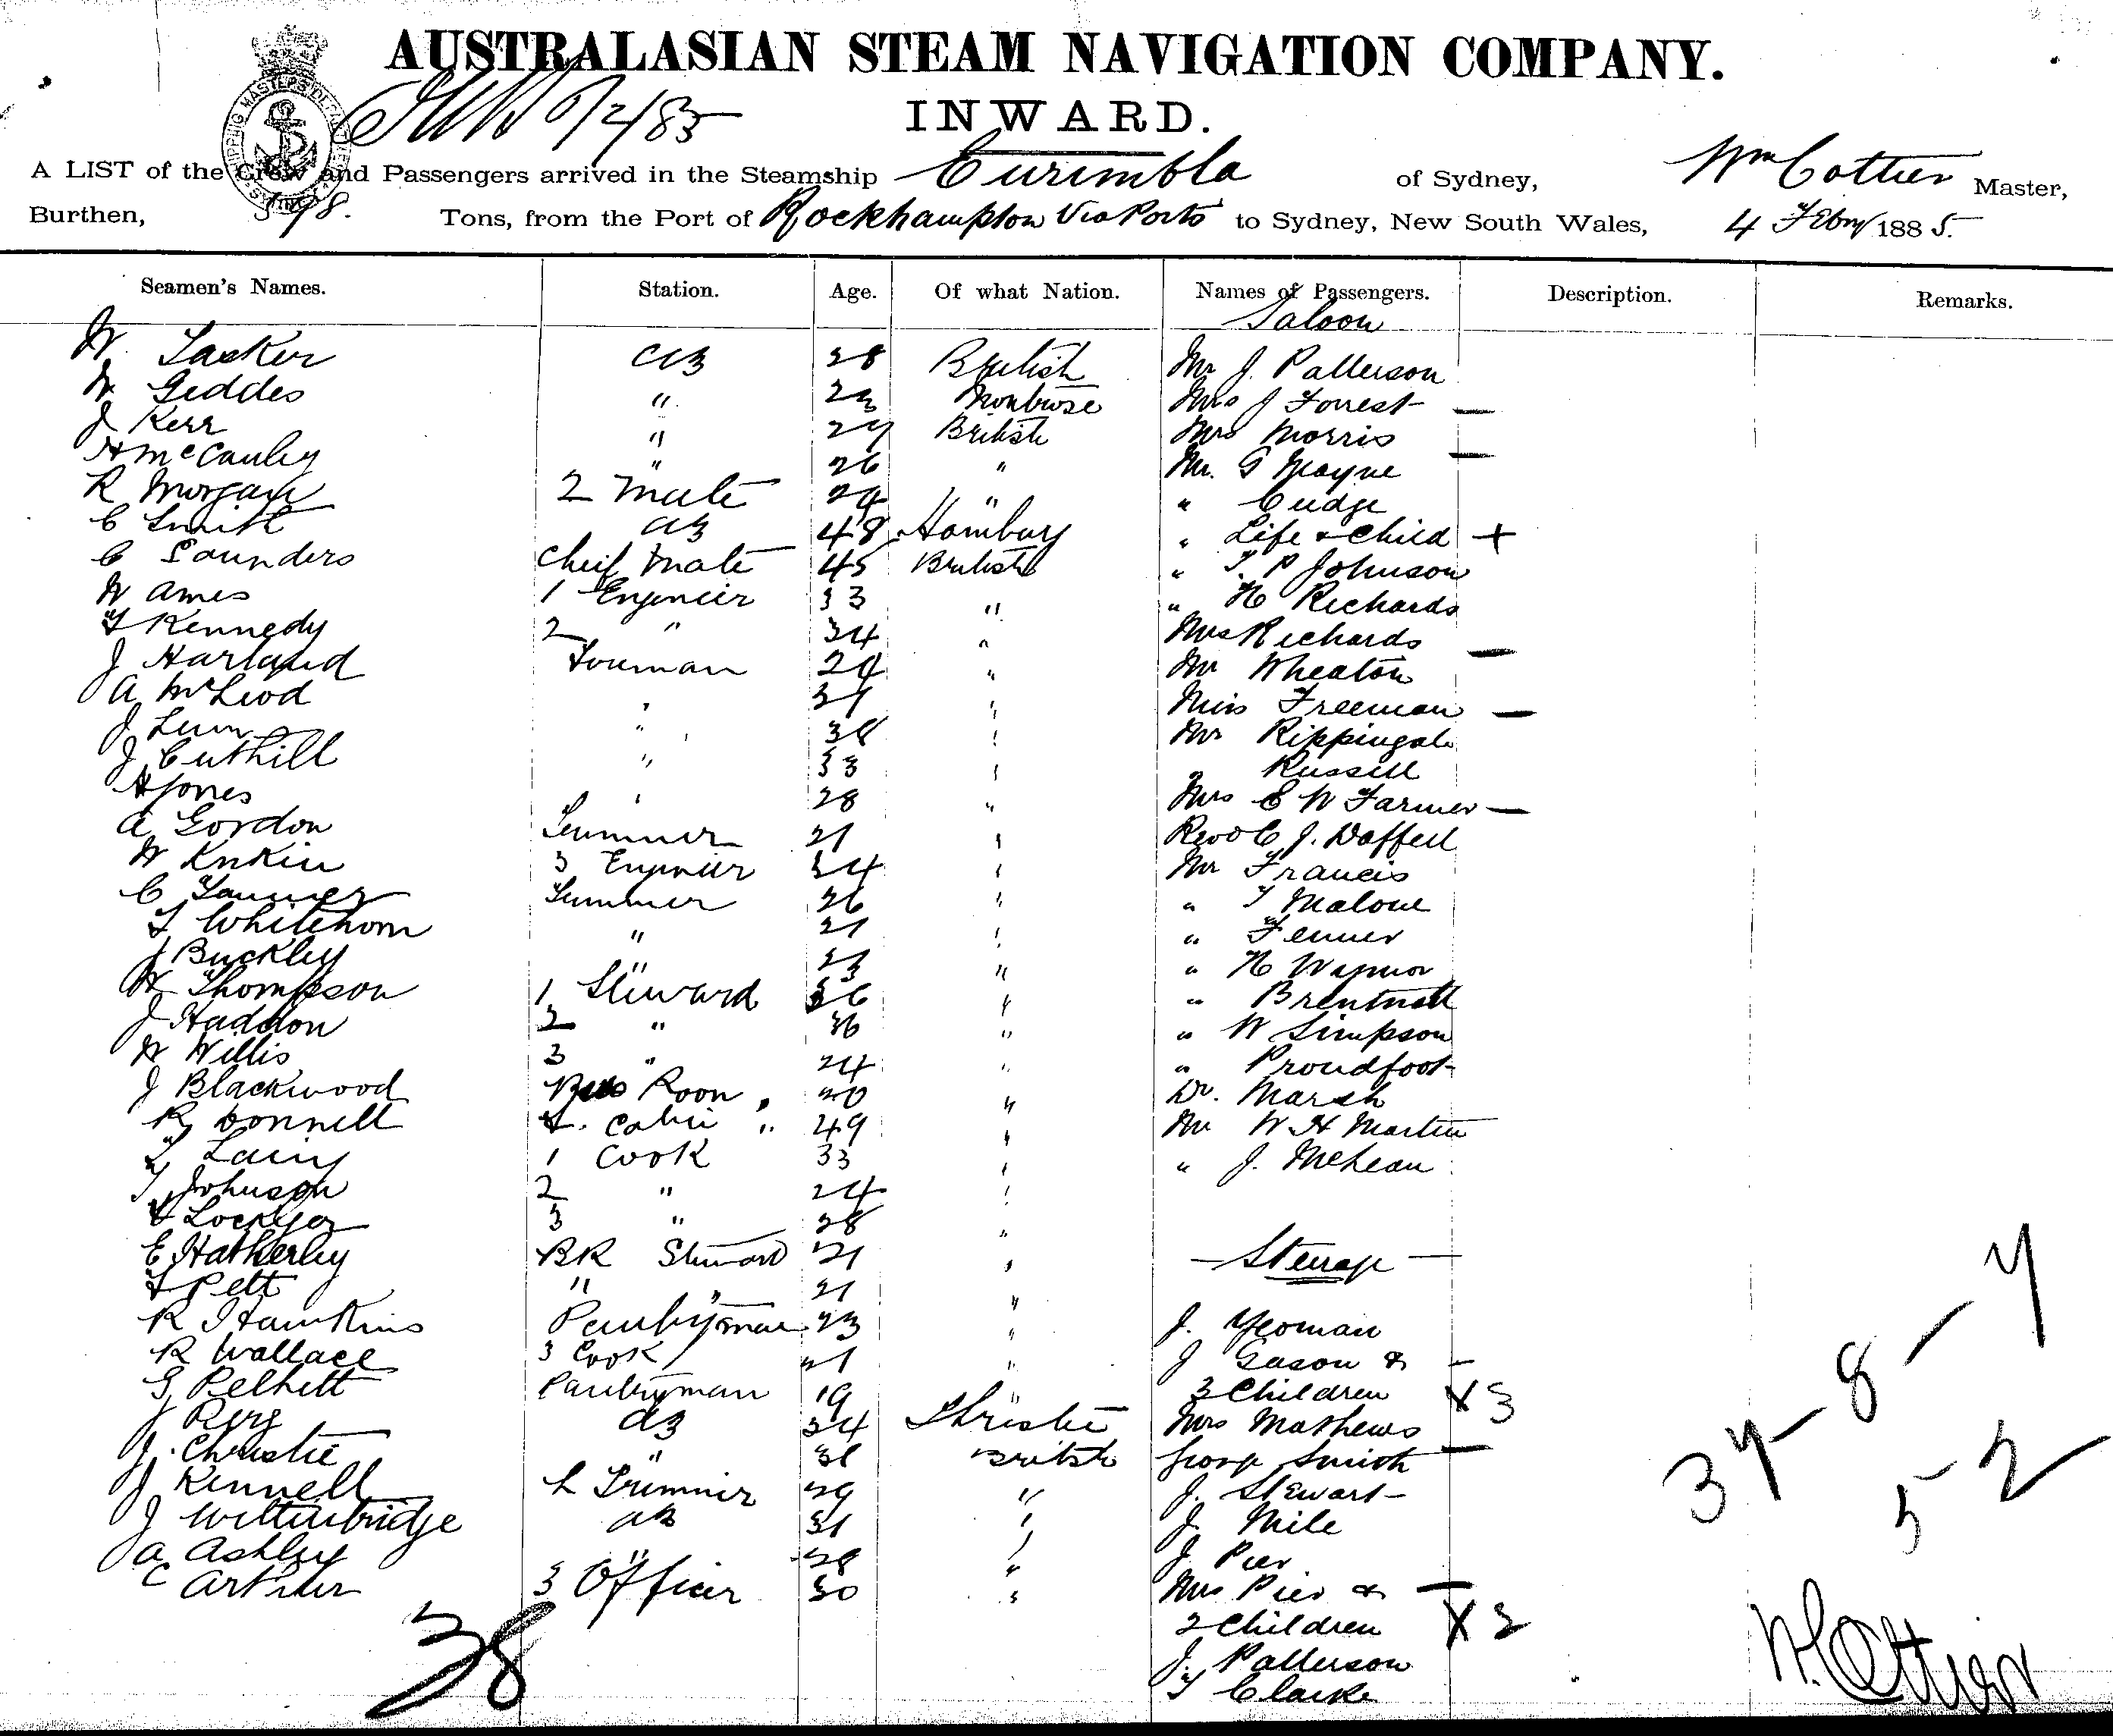 AUSTRALASIAN STEAM NAVIGATION COMPANY.
INWARD.
A LIST of the Crew and Passengers arrived in the Steamship Eurimbla of Sydney, Wm Cottier Master,
Burthen, 598. Tons, from the Port of Rockhampton Via Ports to Sydney, New South Wales, 4 Feby 1885.
Seamen's Names. Station. Age. Of what Nation. Names of Passengers. Description. Remarks.
Saloon
W. Tasker AB 28 British Mr J. Patterson
W Geddes " 23 Montrose Mrs J Forrest —
J Kerr " 27 British Mrs Morris —
H McCauley " 26 " Mr. G Mayne
R Morgan 2 Mate 29 " " Cudge
C Smith AB 48 Hamburg " Life & Child +
C Saunders Cheif Mate 45 British " T. P Johnson
W Ames 1 Engineer 33 " " H Richards
T Kennedy 2 " 34 " Mrs Richards —
J Harland Fireman 29 " Mr Wheaton
A McLeod " 37 " Miss Freeman —
J Lum " 38 " Mr Rippingale
J Cuthill " 33 " " Russell
H Jones " 28 " Mrs E W Farmer —
A Gordon Trimmer 21 " Revd C J.
W 3 Engineer 34 " Mr Francis
C Tanner Trimmer 26 " " T Malone
T Whitehorn " 21 " " Fenner
J Buckley " 23 " " H
W Thompson 1 Steward 36 " " Brentnall
J Haddon 2 " 36 " " W Simpson
W Willis 3 " 24 " " Proudfoot
J Blackwood Room " 20 " Dr. Marsh
R Donnell F. Cabin " 49 " Mr W H Martin
T Laing 1 Cook 33 " " J. McLean
T Johnson 2 " 24 "
Lockyer 3 " 28 "
E Hatherley BR Steward 21 " — Steerage —
T Pett " " 21 "
R Hawkins Pantryman 23 " J. Yeoman
R Wallace 3 Cook 21 " J Gason & —
G Pelhett Pantryman 19 " 3 Children X 3
J Berg AB 34 Mrs Mathews
J. Christie " 31 British George Smith —
J Kennell L Trimmer 29 " J. Stewart
J Witterbridge AB 31 " J. Mile
A Ashley " 28 " J Pier
C Arthur 3 Officer 30 " Mrs Pier & —
2 Children X 2
J. Patterson
T Clarke
38
37 – 8 – 7
5 – 2
W. Cottier